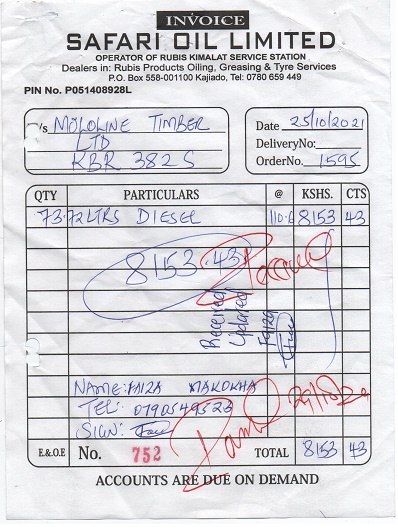 INVOICE
SAFARI OIL LIMITED
OPERATOR OF RUBIS KIMALAT SERVICE STATION
Dealers in: Rubis Products Oiling, Greasing & Tyre Services
P.O. Box 558-001100 Kajiado, Tel: 0780 659 449
PIN No. P051408928L
M/s MOLOLINE TIMBER
LTD
KBR 382 S
Date 25/10/2021
DeliveryNo:
OrderNo. 1595
QTY PARTICULARS @ KSHS. CTS
73.72 LTRS DIESEL 110.6 8153 43
8153.43
Received
Updated
Faiza
NAME: FAIZA MAKOKHA
TEL: 0790549523
SIGN:
E.&O.E No. 752 TOTAL 8153 43
ACCOUNTS ARE DUE ON DEMAND